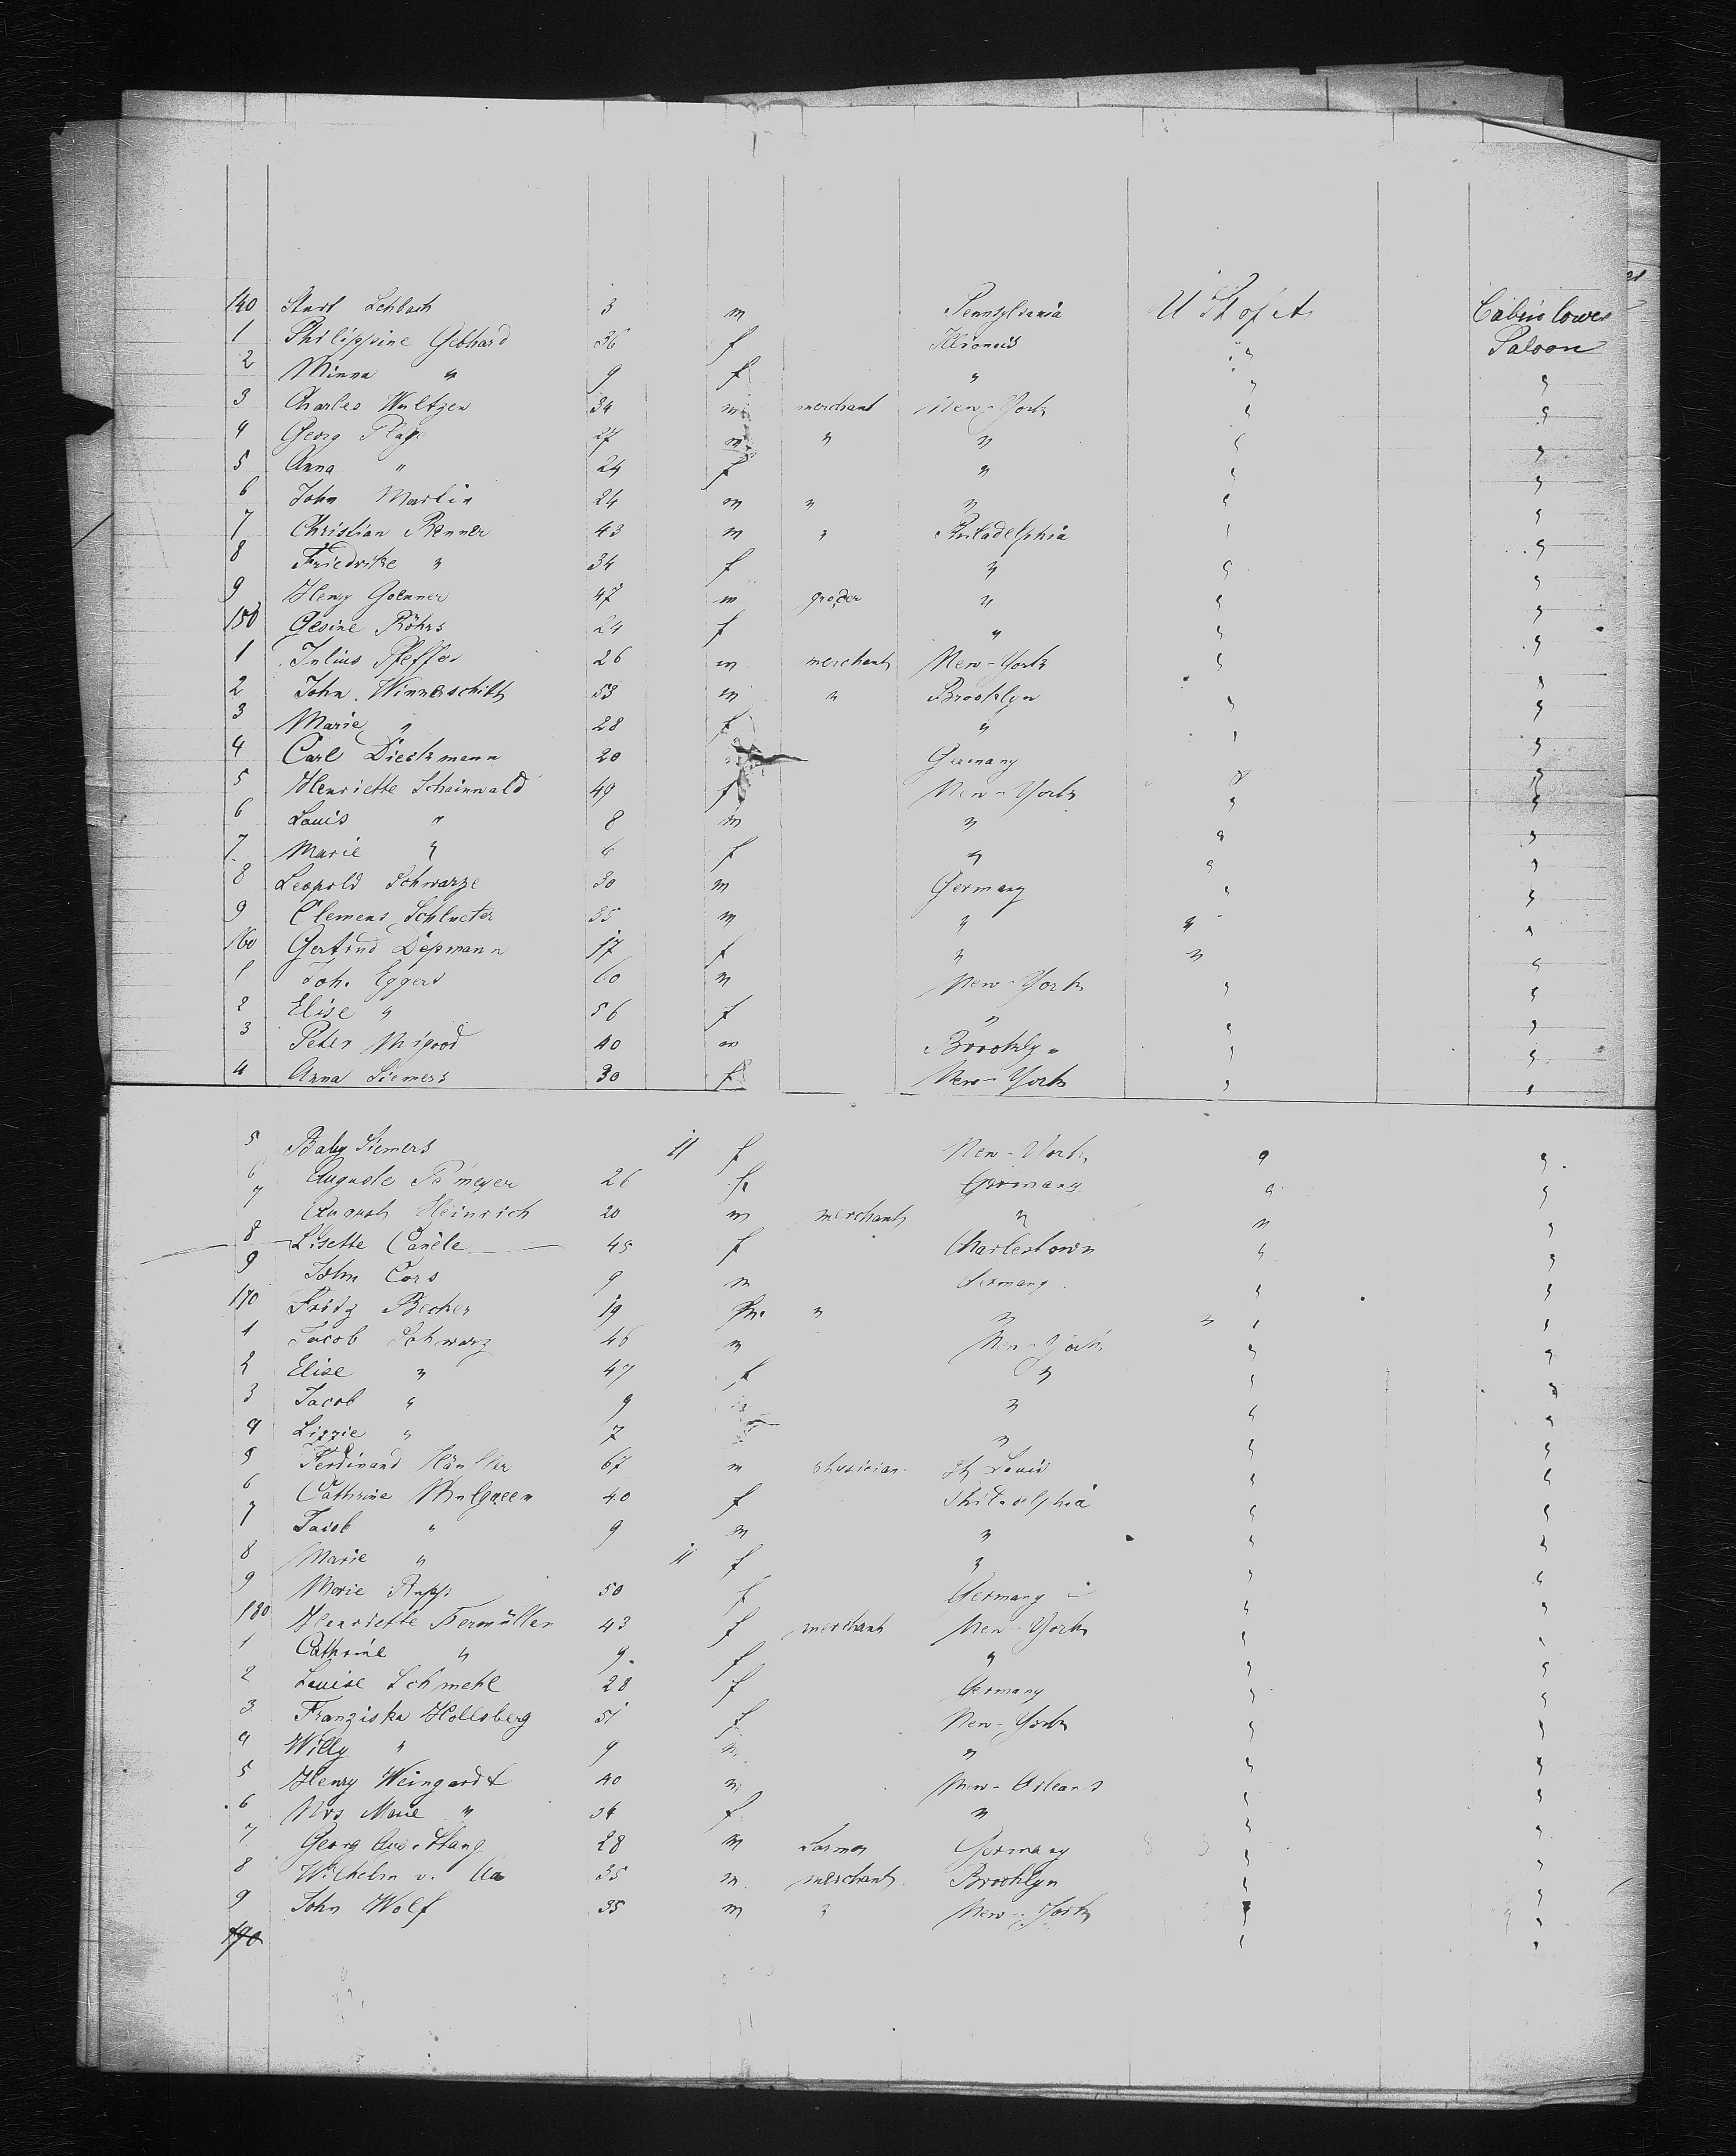 140 Lehbach 3 m Pennsylvania U St of A Cabin lower
1 Philippine Gebhard 36 f Saloon
2 Minna " 9 f " " "
3 Charles Wultzen 34 m merchant New-York " "
4 Georg 27 m " " " "
5 Anna " 24 f " " "
6 John Martin 24 m " " " "
7 Christian Renner 43 m " Philadelphia " "
8 Friedrike " 34 f " " "
9 Henry Goenner 47 m grocer " " "
150 Gesine Röhrs 24 f " " "
1 Julius Pfeffer 26 m merchant New-York " "
2 John Winnerschitt 53 m " Brooklyn " "
3 Marie " 28 f " " "
4 Carl Dieckmann 20 Germany " "
5 Henriette Schainwald 49 f New-York " "
6 Louis " 8 m " " "
7 Marie " 6 f " " "
8 Leopold Schwarze 30 m Germany " "
9 Clemens Schlueter 35 m " " "
160 Gertrud Depmann 17 f " " "
1 Joh. Eggers 60 m New-York " "
2 Elise " 56 f " " "
3 Peter 40 m Brooklyn " "
4 Anna Siemers 30 f New-York " "
5 Baby Siemers 11 f New-York " "
6 Auguste 26 f Germany " "
7 August Heinrich 20 m merchant " " "
8 Lisette 45 f Charlestown " "
9 John Cors 9 m Germany " "
170 Fritz Becker 19 m " " " "
1 Jacob Schwarz 46 m New-York " "
2 Elise " 47 f " " "
3 Jacob " 9 " " "
4 Lizzie " 7 " " "
5 Ferdinand 67 m physician St Louis " "
6 Cathrine 40 f Philadelphia " "
7 Jacob " 9 m " " "
8 Marie " 11 f " " "
9 Marie Rupp 50 f Germany " "
180 Henriette Termüllen 43 f merchant New-York " "
1 Cathrine " 9 f " " "
2 Louise Schmehl 28 f Germany " "
3 Franziska Hollsberg 51 f New-York " "
4 Willy " 9 m " " "
5 Henry Weingardt 40 m New-Orleans " "
6 Mrs Marie " 34 f " " "
7 Georg Aug. Stang 28 m Germany " "
8 Wilhelm v. 35 m merchant Brooklyn " "
9 John Wolf 35 m " New-York " "
190